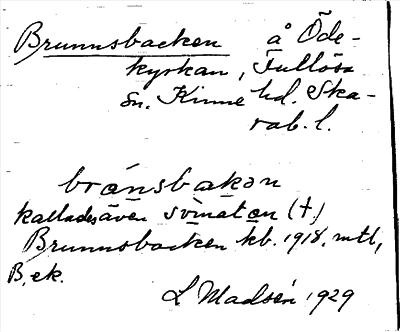 Brunnsbacken å Öde-
kyrkan, Fullösa
sn. Kinne hd. Ska-
rab. l.
bránsbakən
kallades även svinatən (t.)
Brunnsbacken kb. 1918, mtl,
B, ek.
L Madsén 1929